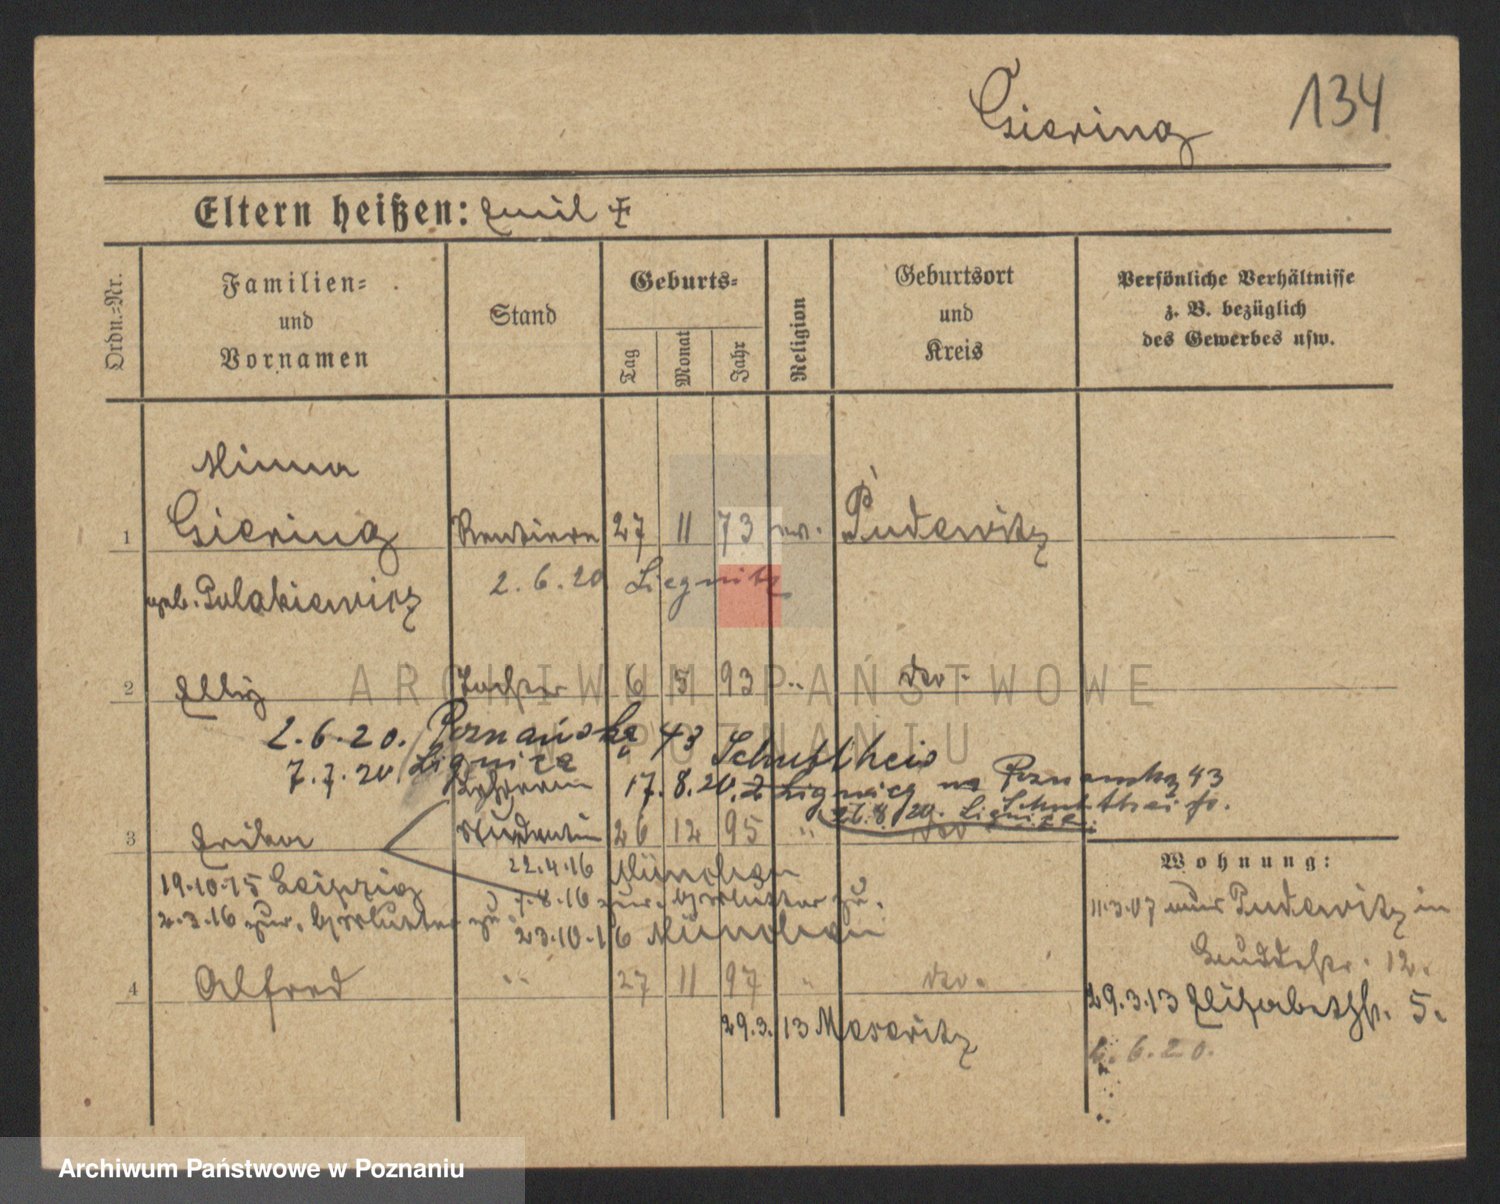 Giering
134
Eltern heißen: Emil †
Ordn.=Nr.
Familien=
und
Vornamen
Stand
Geburts=
Tag
Monat
Jahr
Religion
Geburtsort
und
Kreis
Persönliche Verhältnisse
z. B. bezüglich
des Gewerbes usw.
Minna
1 Giering Rentiere 27 11 73 ev. Pudewitz
2.6.20 Liegnitz
geb. Pulakiewicz
2 Elly Tochter 6 5 93 " do.
2.6.20. Poznańska 43 Schultheis
7.7.20. Lignica
Lehrerin 17.8.20. z Lignicy na Poznańską 43
Schultheis
26.8.20. Lignica
3 Erika Studentin 26 12 95 " do
22.4.16 München
19.10.15 Leipzig
7.8.16 zur. v. Mutter zu.
2.3.16 zur. v. Mutter zu.
23.10.16 München
4 Alfred " 27 11 97 " do.
29.3.13 Meseritz
Wohnung:
11.3.07 aus Pudewitz in
12.
29.3.13 Elisabethstr. 5.
6.20.
ARCHIWUM PAŃSTWOWE
W POZNANIU
Archiwum Państwowe w Poznaniu